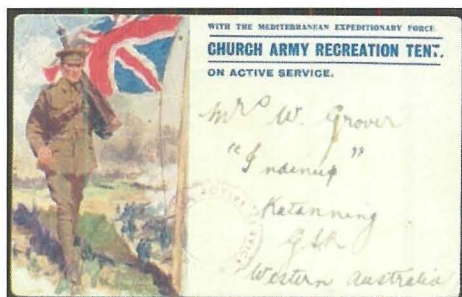 WITH THE MEDITERRANEAN EXPEDITIONARY FORCE.
CHURCH ARMY RECREATION TENT.
ON ACTIVE SERVICE.
Mrs W. Grover
"Indenup"
Katanning
GSR
Western Australia